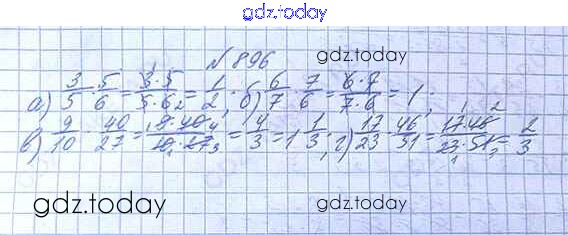 gdz.today
№ 896
gdz.today
а) 3/5 · 5/6 = 3·5/5·6 2 = 1/2; б) 6/7 · 7/6 = 6·7/7·6 = 1;
в) 9/10 · 40/27 = 1 9·40 4/10·27 1 3 = 4/3 = 1 1/3; г) 17/23 · 46/51 = 17·46 1 2/23·51 1 3 = 2/3
gdz.today gdz.today